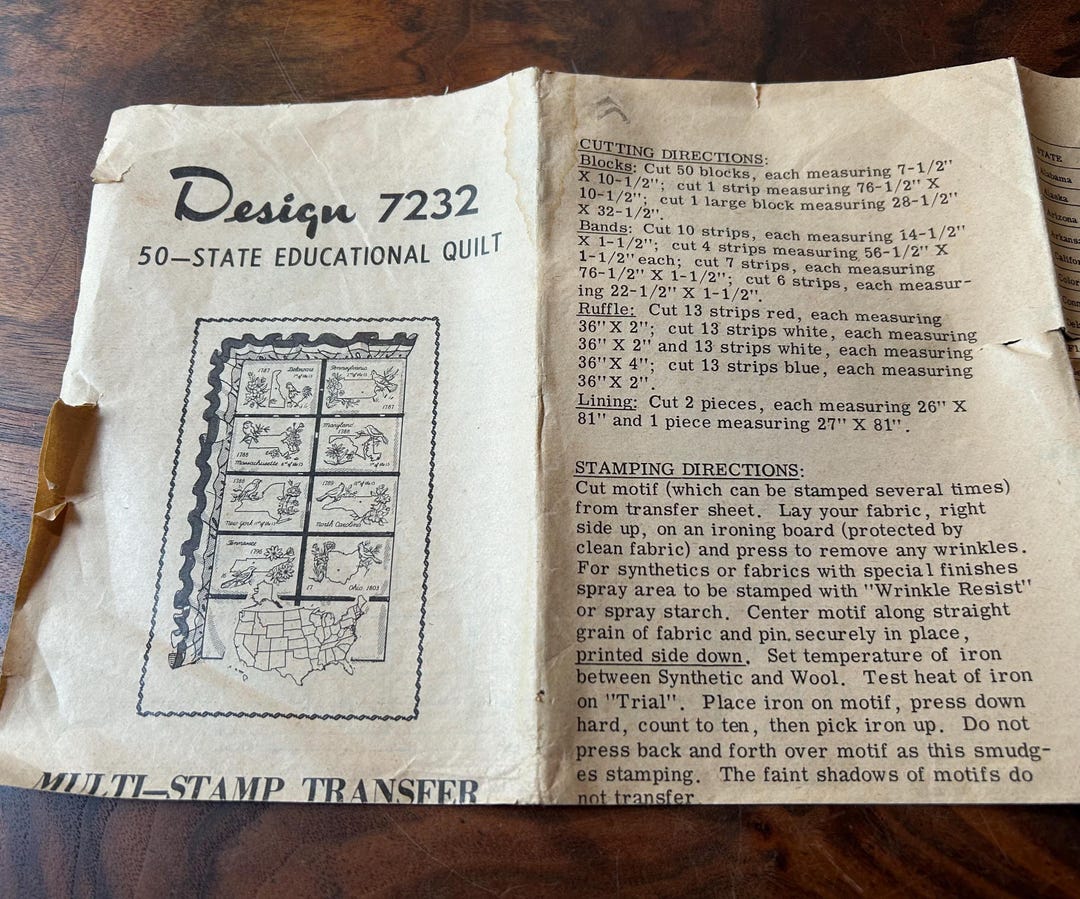 Design 7232
50—STATE EDUCATIONAL QUILT
1787 Delaware
Pennsylvania
1787
1788
Massachusetts
Maryland
1788
1788
New York
1789
North Carolina
Tennessee
1796
16
17 Ohio 1803
MULTI—STAMP TRANSFER
CUTTING DIRECTIONS:
Blocks: Cut 50 blocks, each measuring 7-1/2"
X 10-1/2"; cut 1 strip measuring 76-1/2" X
10-1/2"; cut 1 large block measuring 28-1/2"
X 32-1/2".
Bands: Cut 10 strips, each measuring 14-1/2"
X 1-1/2"; cut 4 strips measuring 56-1/2" X
1-1/2" each; cut 7 strips, each measuring
76-1/2" X 1-1/2"; cut 6 strips, each measur-
ing 22-1/2" X 1-1/2".
Ruffle: Cut 13 strips red, each measuring
36" X 2"; cut 13 strips white, each measuring
36" X 2" and 13 strips white, each measuring
36" X 4"; cut 13 strips blue, each measuring
36" X 2".
Lining: Cut 2 pieces, each measuring 26" X
81" and 1 piece measuring 27" X 81".
STAMPING DIRECTIONS:
Cut motif (which can be stamped several times)
from transfer sheet. Lay your fabric, right
side up, on an ironing board (protected by
clean fabric) and press to remove any wrinkles.
For synthetics or fabrics with special finishes
spray area to be stamped with "Wrinkle Resist"
or spray starch. Center motif along straight
grain of fabric and pin securely in place,
printed side down. Set temperature of iron
between Synthetic and Wool. Test heat of iron
on "Trial". Place iron on motif, press down
hard, count to ten, then pick iron up. Do not
press back and forth over motif as this smudg-
es stamping. The faint shadows of motifs do
not transfer.
STATE
Alabama
Alaska
Arizona